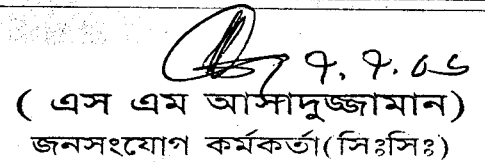 ৭.৭.০৬
( এস এম আসাদুজ্জামান)
জনসংযোগ কর্মকর্তা(সিঃসিঃ)